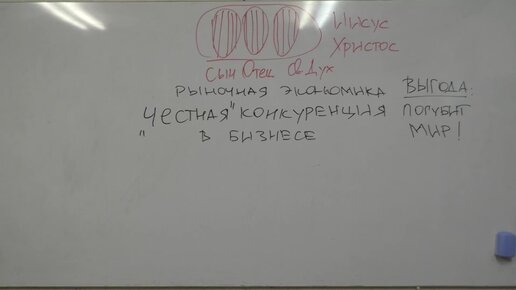 Иисус
Христос
Сын Отец Св Дух
РЫНОЧНАЯ ЭКОНОМИКА ВЫГОДА:
ЧЕСТНАЯ" КОНКУРЕНЦИЯ ПОГУБИТ
" В БИЗНЕСЕ МИР!